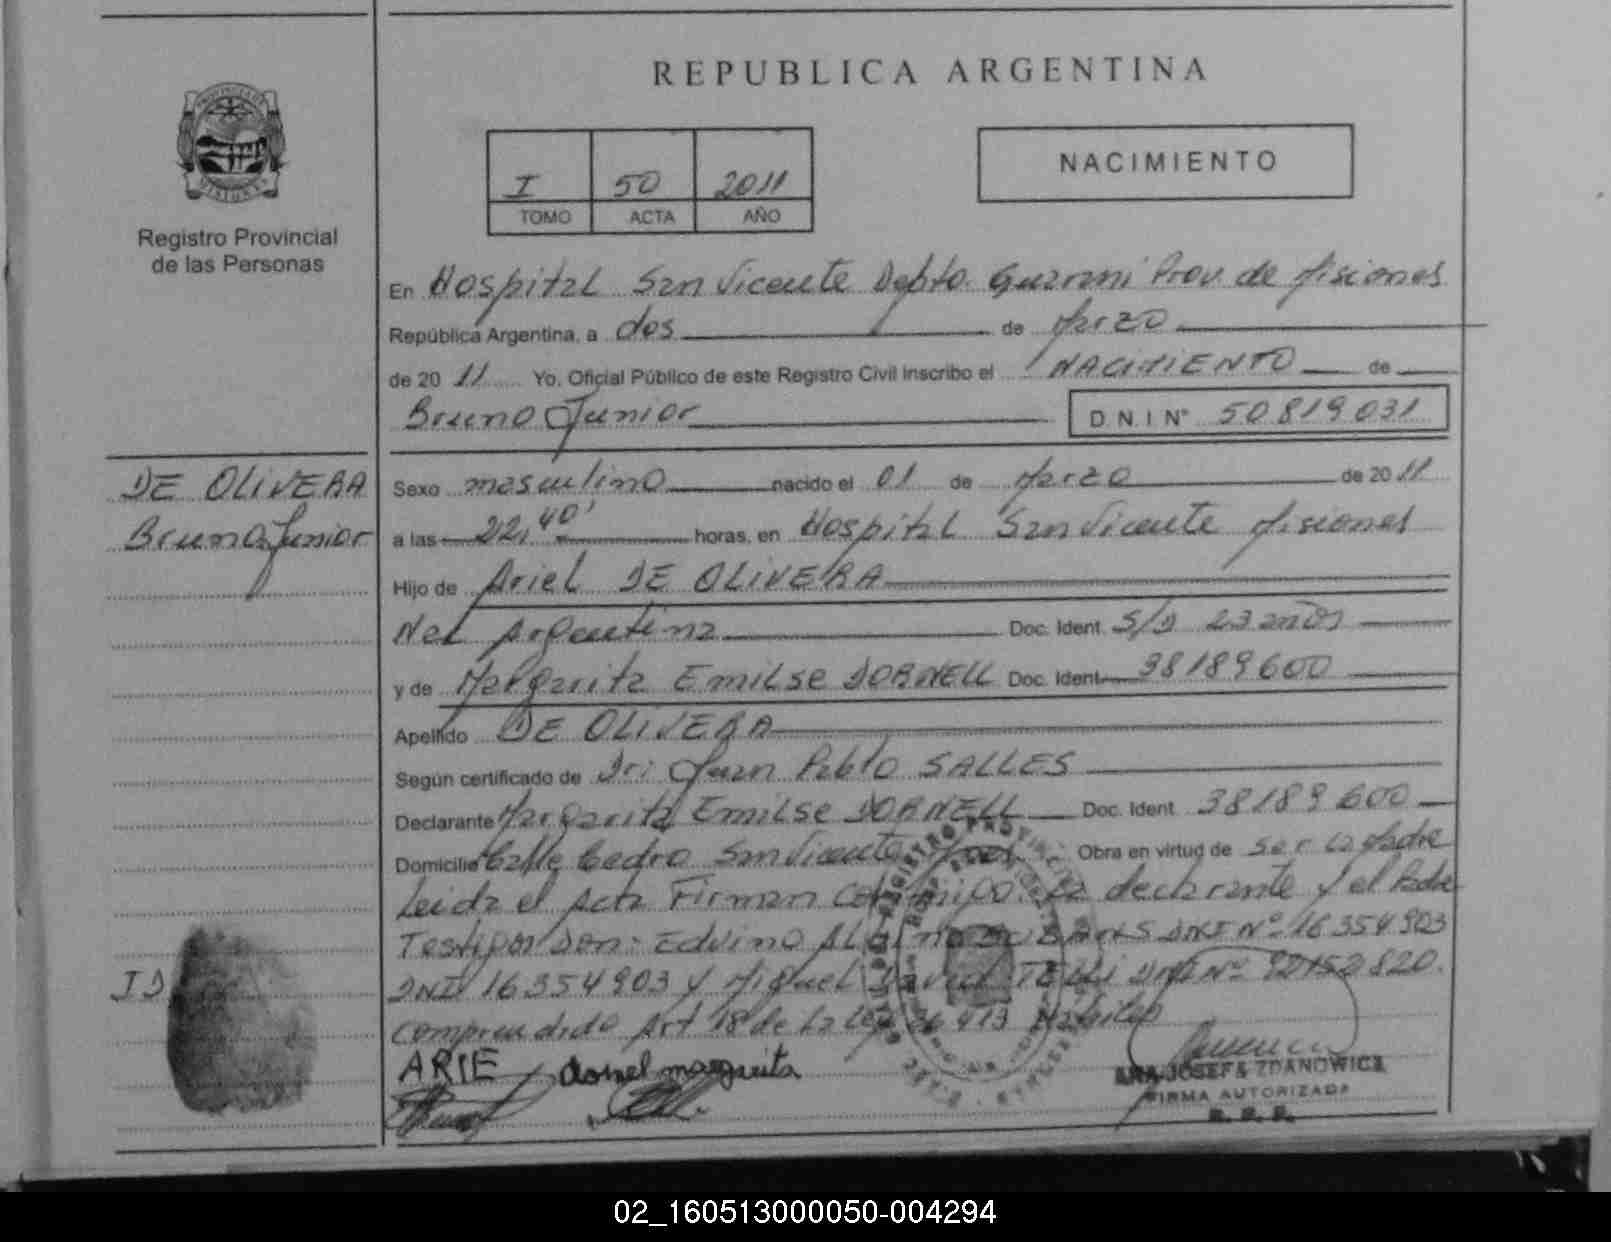 REPUBLICA ARGENTINA
I 50 2011
TOMO ACTA AÑO
NACIMIENTO
Registro Provincial
de las Personas
En Hospital San Vicente Depto. Guarani Prov. de Misiones
República Argentina, a dos de Marzo
de 20 11 Yo. Oficial Público de este Registro Civil inscribo el NACIMIENTO de
Bruno Junior D.N.I Nº 50819031
DE OLIVERA
Bruno Junior
Sexo masculino nacido el 01 de Marzo de 20 11
a las 22,40' horas, en Hospital San Vicente Misiones
Hijo de Ariel DE OLIVERA
Nac Argentina Doc. Ident. S/D 23 años
y de Margarita Emilse DORNELL Doc. Ident. 38189600
Apellido DE OLIVERA
Según certificado de Dr: Juan Pablo SALLES
Declarante Margarita Emilse DORNELL Doc. Ident. 38189600
Domicilio Calle Cedro San Vicente Obra en virtud de ser la Madre
Leida el Acta Firman conmigo La declarante y el Padre
Testigos Don: Edvino DNI Nº 16354903
DNI 16354903 y Miguel DNI Nº 92152820.
Comprendido Art 18 de La Ley 26413
ID
ARIE dornel margarita
ANA JOSEFA ZDANOWICZ
FIRMA AUTORIZADA
R. P. P.
02_160513000050-004294